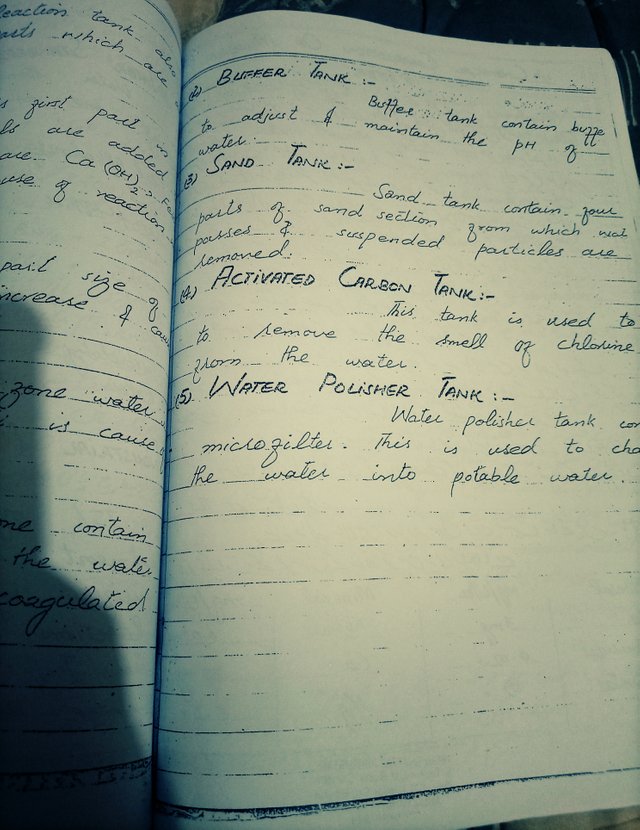 Reaction tank also
parts which are
is first part in
are added
are Ca(OH)2, Fe
use of reaction
part size of
increase & cau
zone water
is cause
one contain
the water
coagulated
(2) BUFFER TANK :-
Buffer tank contain buffe
to adjust & maintain the pH of
water.
(3) SAND TANK :-
Sand tank contain four
parts of sand section from which wat
passes & suspended particles are
removed.
(4) ACTIVATED CARBON TANK :-
This tank is used to
to remove the smell of chlorine
from the water.
(5) WATER POLISHER TANK :-
Water polisher tank con
microfilter. This is used to cha
the water into potable water.